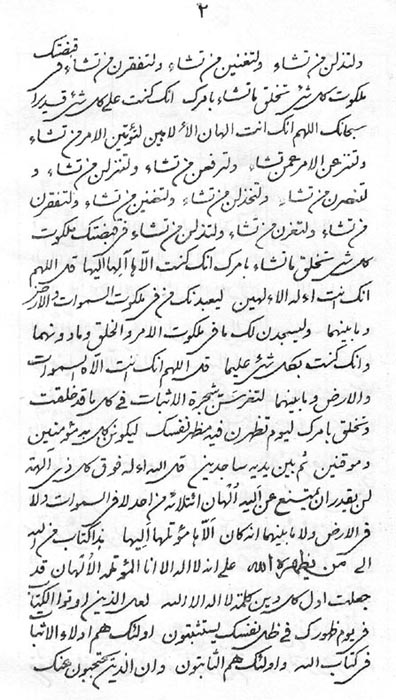 ٢
ولتذلن من تشاء ولتغنين من تشاء ولتفقرن من تشاء في قبضتك
ملكوت كل شئ تخلق ما تشاء بامرك انك كنت على كل شئ قديرا
سبحانك اللهم انك انت الهان الالاهين لتؤتين الامر من تشاء
ولتنزعن الامر عمن تشاء ولترفعن من تشاء ولتنزلن من تشاء و
لتنصرن من تشاء ولتخذلن من تشاء ولتغنين من تشاء ولتفقرن
من تشاء ولتعزن من تشاء ولتذلن من تشاء في قبضتك ملكوت
كل شئ تخلق ما تشاء بامرك انك كنت الاها آلها اليها قل اللهم
انك انت اءله الاءلهين ليعبدنك من في ملكوت السموات والارض
وما بينهما وليسجدن لك ما في ملكوت الامر والخلق وما دونهما
وانك كنت بكل شئ عليما قل اللهم انك انت الاه السموات
والارض وما بينهما لتغرسن شجرة الاثبات في كل ما قد خلقت
وتخلق بامرك ليوم تظهرن فيه مظهر نفسك ليكونن كل به مؤمنين
وموقنين ثم بين يديه ساجدين قل الله اءله فوق كل ذي الهة
لن يقدر ان يمتنع عن اليه الهان من احد لا في السموات ولا
في الارض ولا ما بينهما انه كان الاها مؤتلها اليها هذا كتاب من لله
الى من يظهره الله على انه لا اله الا انا المؤتله الالهان قد
جعلت اول كل دين كلمة لا اله الا الله لعل الذين اوتوا الكتاب
في يوم ظهورك في ظل نفسك يستثبتون اولئك هم ادلاء الاثبات
في كتاب الله واولئك هم الثابتون وان الذين يحتجبون عنك